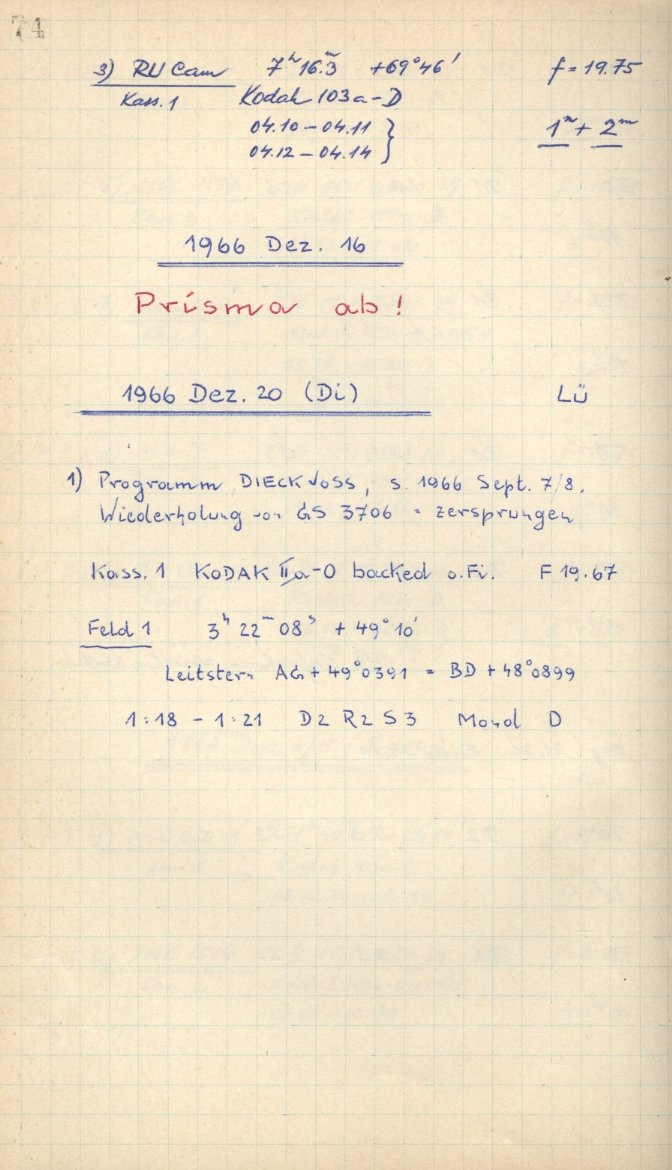 74
3) RU Cam 7ʰ16ᵐ.3 +69°46' f = 19.75
Kass. 1 Kodak 103a-D
04.10 – 04.11 } 1ᵐ + 2ᵐ
04.12 – 04.14
1966 Dez. 16
Prisma ab!
1966 Dez. 20 (Di) Lü
1) Programm DIECKVOSS, s. 1966 Sept. 7/8.
Wiederholung von GS 3706 = zersprungen
Kass. 1 KODAK IIa-O backed o. Fi. F 19.67
Feld 1 3ʰ 22ᵐ 08ˢ + 49° 10'
Leitstern AG + 49°0391 = BD + 48°0899
1:18 – 1:21 D2 R2 S3 Mond D